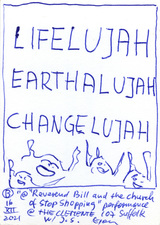 LIFELUJAH
EARTHALUJAH
CHANGELUJAH
"@ "Reverend Bill and the church
of Stop Shopping" performance
@ THE CLEMENTE 107 Suffolk
w/ J.S.
16
XII
2021